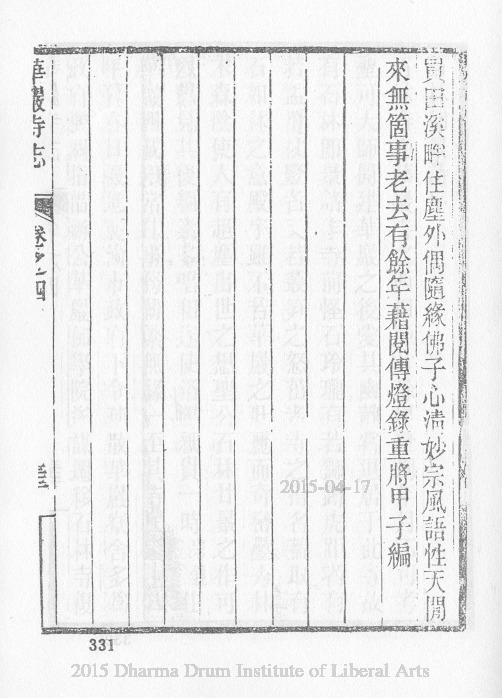 買田溪畔住塵外偶隨緣佛子心清妙宗風語性天閒
來無箇事老去有餘年藉閱傳燈錄重將甲子編
華嚴寺志
卷之四
2015-04-17
331
2015 Dharma Drum Institute of Liberal Arts